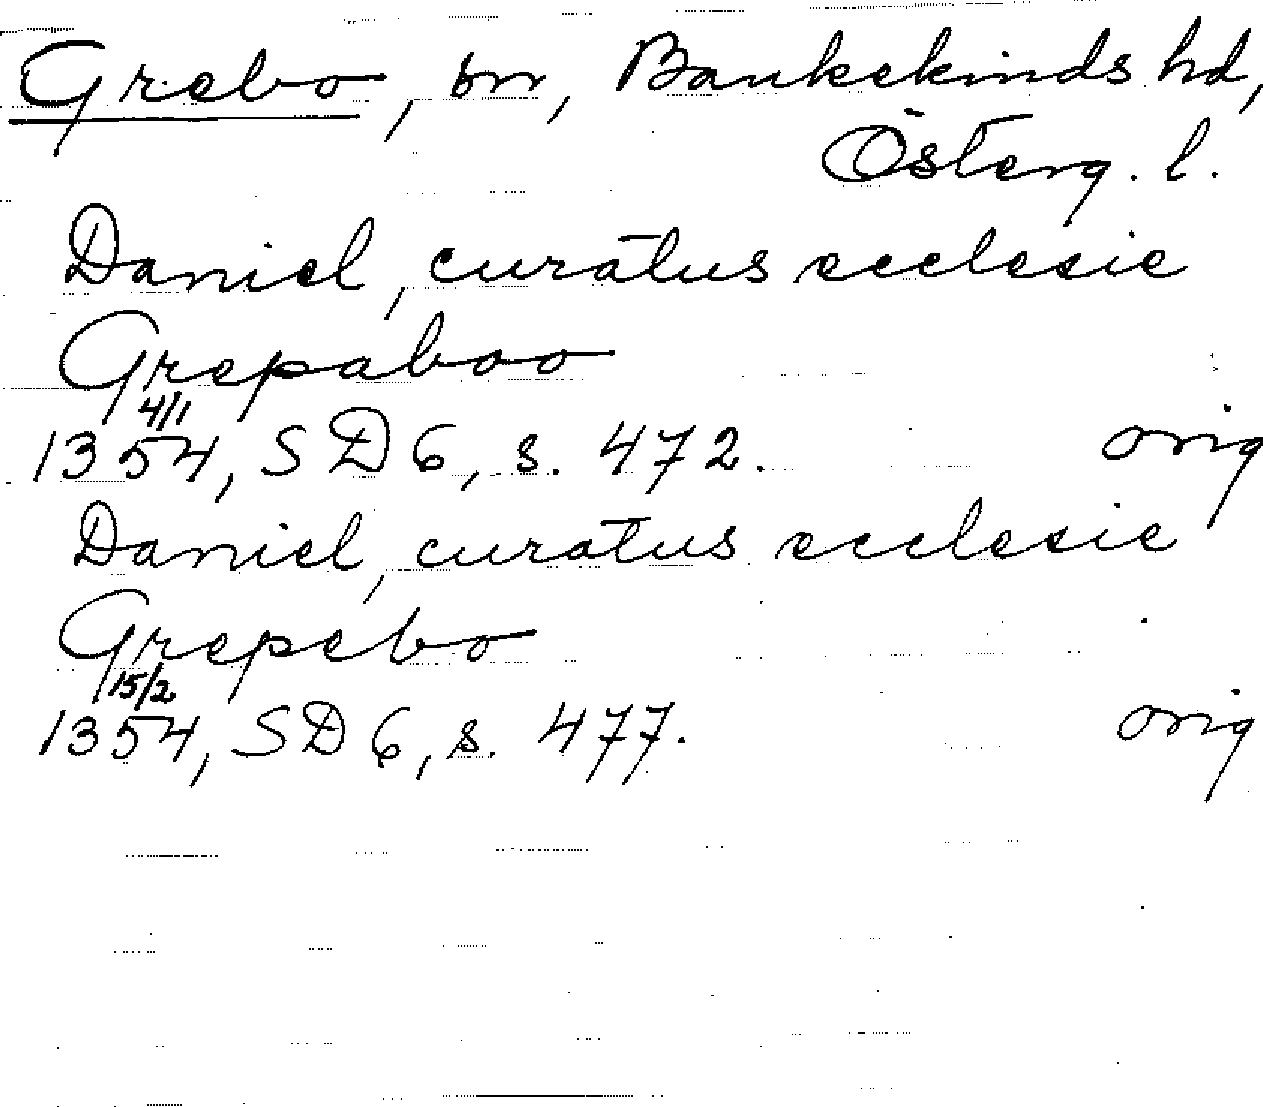 Grebo, sn, Bankekinds hd,
Österg. l.
Daniel, curatus ecclesie
Grepaboo
4/1
1354, SD 6, s. 472. orig
Daniel, curatus ecclesie
Grepebo
15/2
1354, SD 6, s. 477. orig